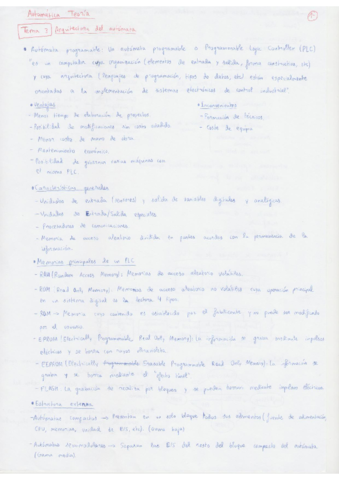 Automática Teoría
Tema 3 Arquitectura del autómata
• Autómata programable: un autómata programable o Programmable Logic Controller (PLC)
"es un computador cuya organización (elementos de entrada y salida, forma constructiva, etc)
y cuya arquitectura (lenguajes de programación, tipos de datos, etc) están especialmente
orientados a la implementación de sistemas electrónicos de control industrial"
• Ventajas
• Inconvenientes
- Menor tiempo de elaboración de proyectos
- Formación de técnicos
- Posibilidad de modificaciones sin coste añadido
- Coste de equipo
- Menor coste de mano de obra
- Mantenimiento económico
- Posibilidad de gobernar varias máquinas con
el mismo PLC.
• Características generales
- Unidades de entrada y salida de variables digitales y analógicas
- Unidades de Entrada/Salida especiales
- Procesadores de comunicaciones
- Memoria de acceso aleatorio
información.
• Memorias principales de un PLC
- RAM (Random Access Memory): Memorias de acceso aleatorio volátiles.
- ROM (Read Only Memory): Memorias de acceso aleatorio no volátiles cuya operación principal
en un sistema digital es la lectura
- ROM → Memoria cuyo contenido es establecido por el fabricante y no puede ser modificado
por el usuario
- EPROM (Electrically Programmable Read Only Memory): la información se graba mediante impulsos
eléctricos y se borra con rayos ultravioleta.
- EEPROM (Electrically Programmable Read Only Memory): la información se
graba y se borra mediante el "efecto túnel"
- FLASH: La grabación se realiza por bloques y se pueden borrar mediante impulsos eléctricos
• Estructura externa
- Autómatas compactos → Presentan en un solo bloque todos sus elementos (fuente de alimentación,
CPU, memorias, unidad de E/S, etc) (Gama baja)
- Autómatas → Separan las E/S del resto del bloque compacto del autómata
(Gama media)